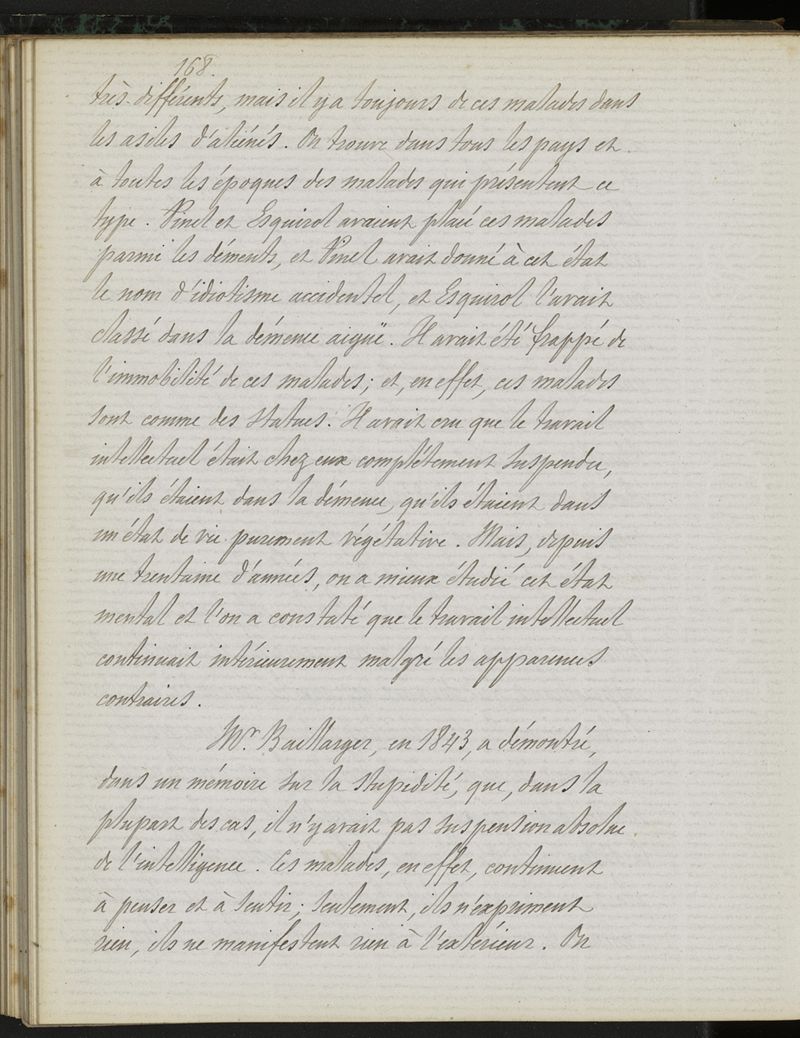 168.
très-différents, mais il y a toujours de ces malades dans
les asiles d'aliénés. On trouve dans tous les pays et
à toutes les époques des malades qui présentent ce
type. Pinel et Esquirol avaient placé ces malades
parmi les déments, et Pinel avait donné à cet état
le nom d'idiotisme accidentel, et Esquirol l'avait
classé dans la démence aiguë. Il avait été frappé de
l'immobilité de ces malades; et, en effet, ces malades
sont comme des statues. Il avait cru que le travail
intellectuel était chez eux complétement suspendu,
qu'ils étaient dans la démence, qu'ils étaient dans
un état de vie purement végétative. Mais, depuis
une trentaine d'années, on a mieux étudié cet état
mental et l'on a constaté que le travail intellectuel
continuait intérieurement malgré les apparences
contraires.
Mr Baillarger, en 1843, a démontré,
dans un mémoire sur la stupidité, que, dans la
plupart des cas, il n'y avait pas suspension absolue
de l'intelligence. Ces malades, en effet, continuent
à penser et à sentir; seulement, ils n'expriment
rien, ils ne manifestent rien à l'extérieur. On